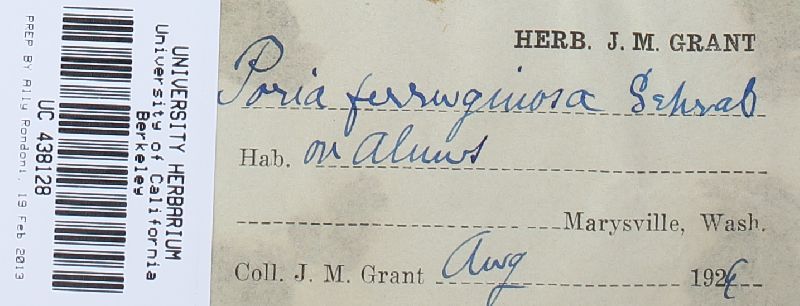 UNIVERSITY HERBARIUM
University of California
Berkeley
UC 438128
PREP BY Ally Rondoni, 19 Feb 2013
HERB. J. M. GRANT
Poria ferruginosa Schrab
Hab. on Alnus
Marysville, Wash.
Coll. J. M. Grant Aug 1926